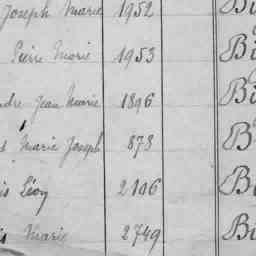 Joseph Marie 1952 Bi
Pierre Marie 1953 Bi
dre Jean Marie 1896 Bi
Marie Joseph 878 B
is Léon 2106 Bi
is Marie 2749 Bi